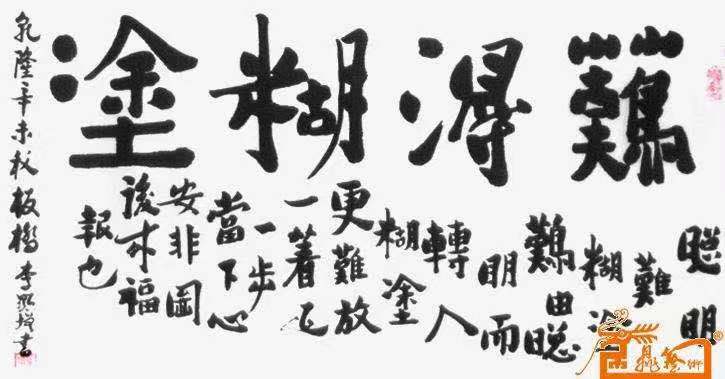 難淂糊塗
聰明
難
糊塗
難由聰
明而
轉入
糊塗
更難放
一著退
一步
當下心
安非圖
後来福
報也
乾隆辛未秋板橋李書